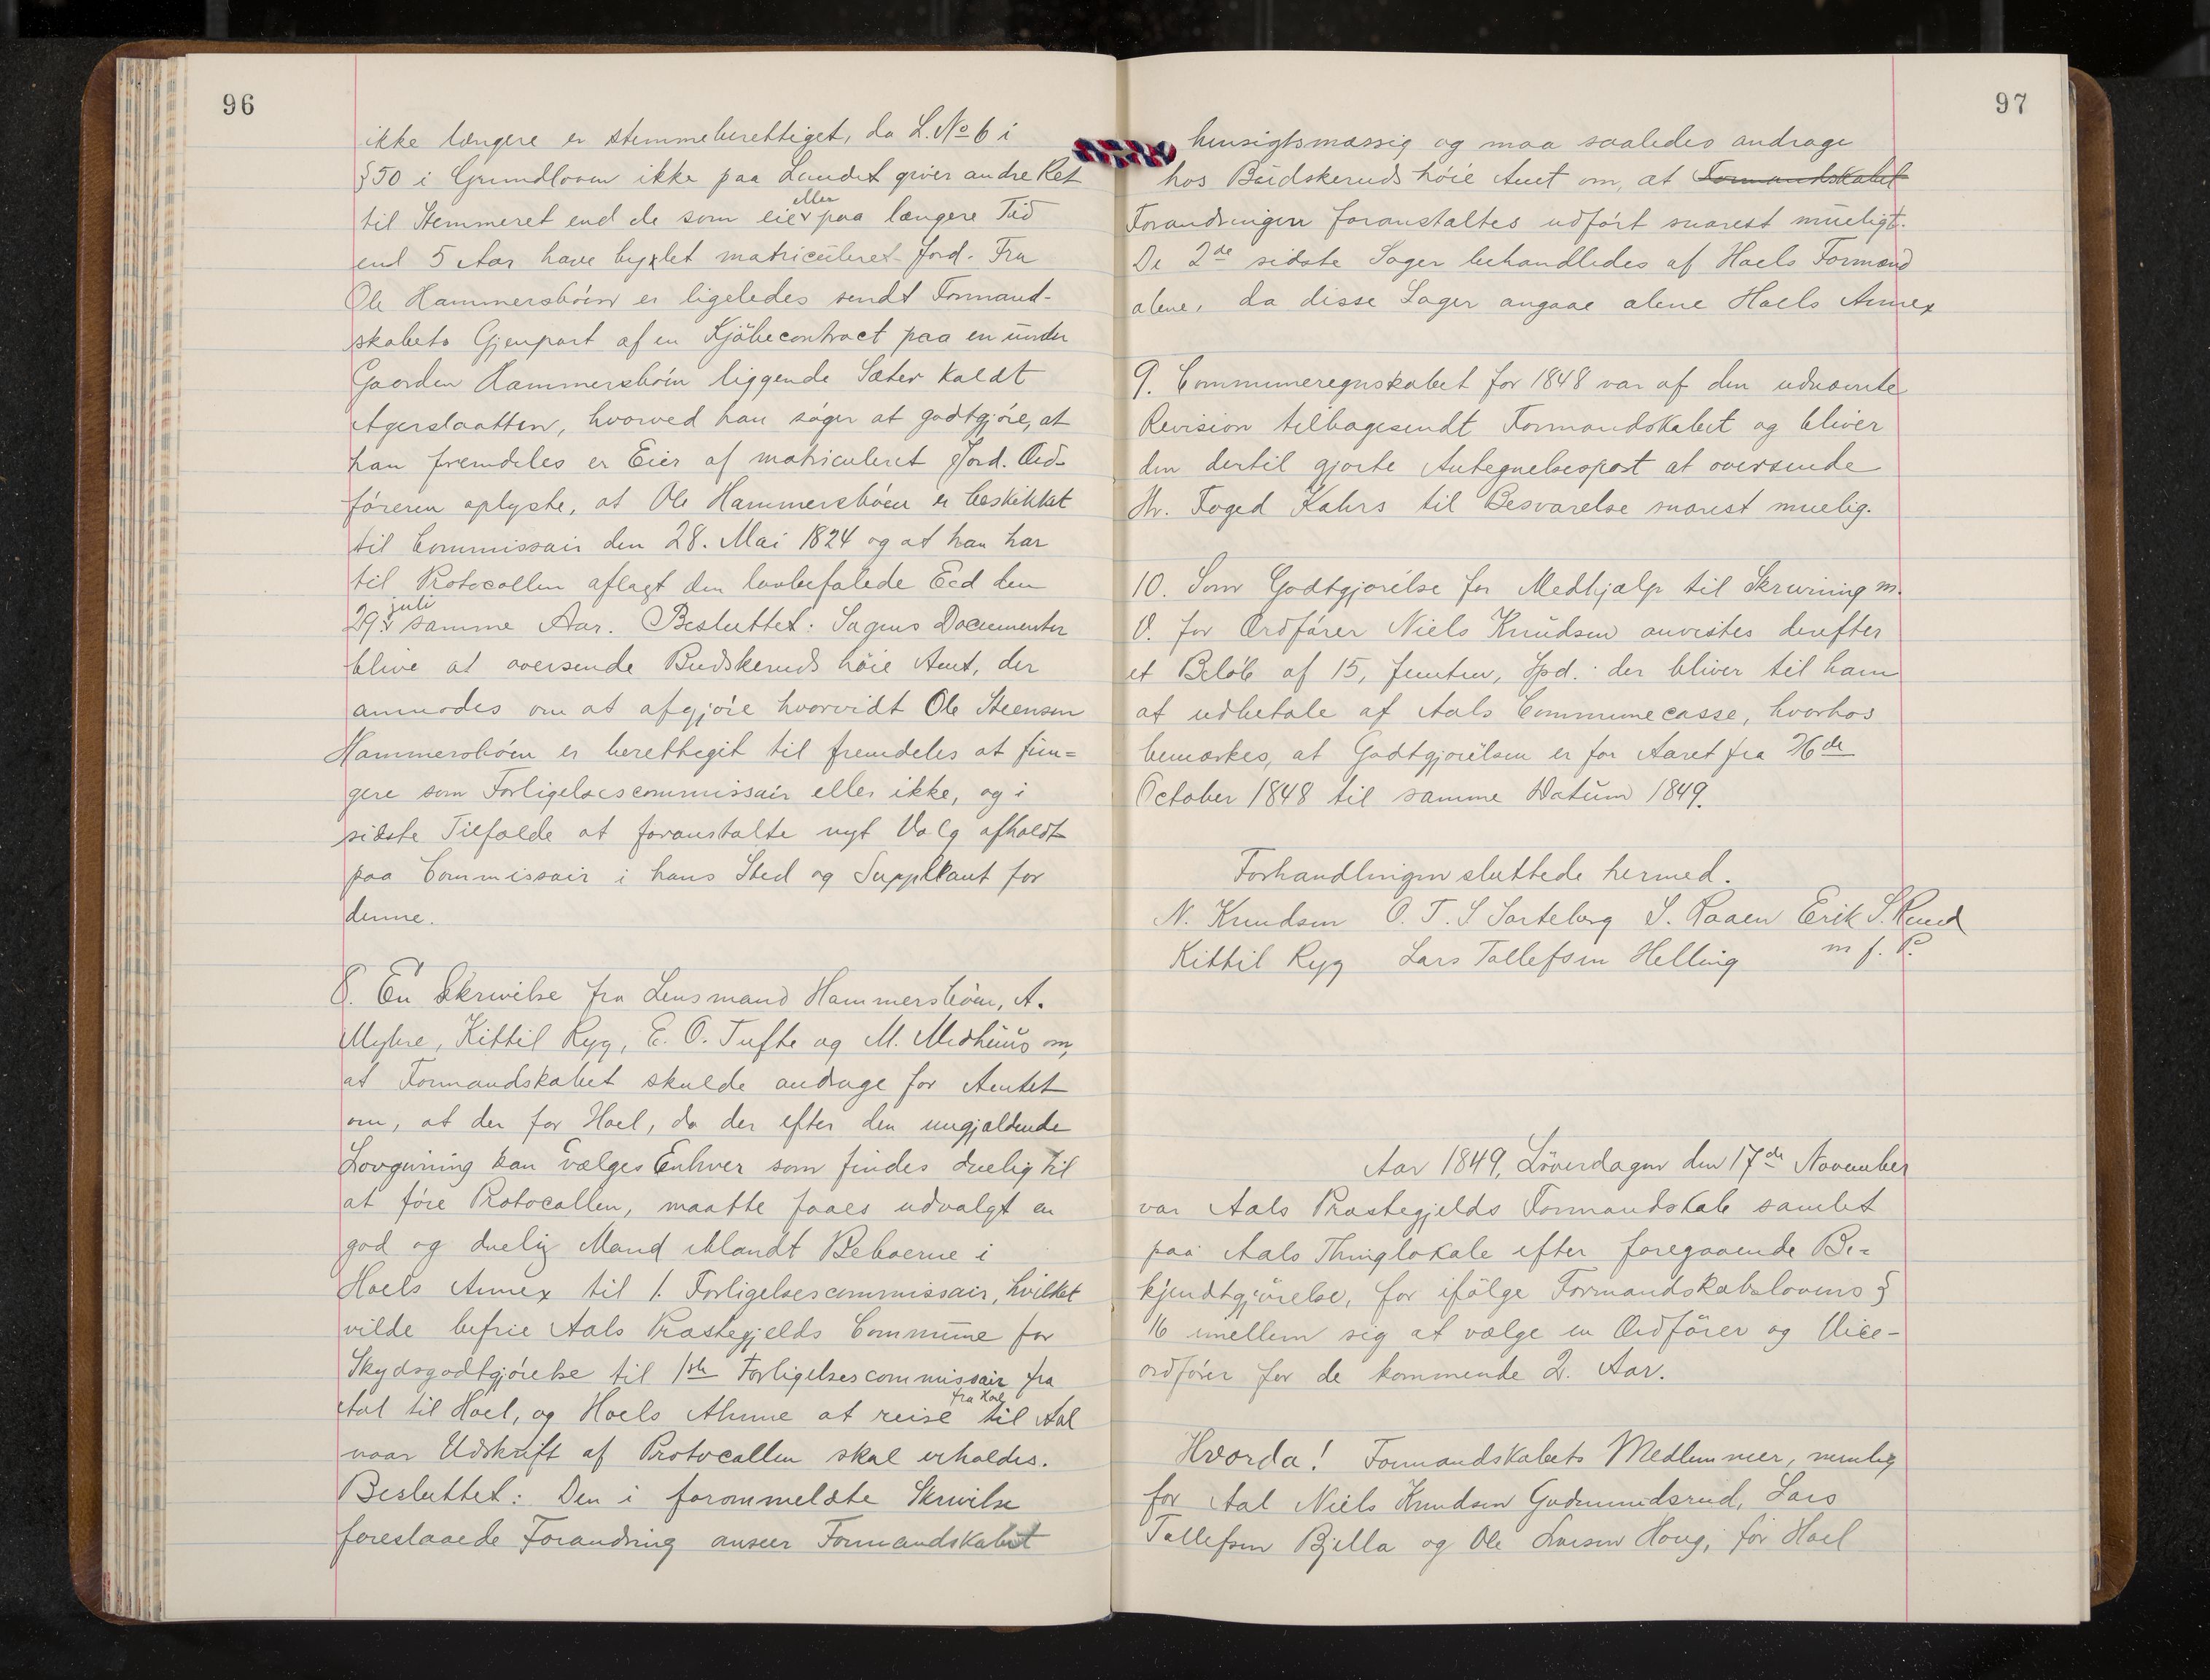 96
ikke længere er stemmeberettiget, da L. No 6 i
§50 i Grundloven ikke paa Landet giver andre Ret
til Stemmeret end de som eier eller paa længere Tid
end 5 Aar have byxlet matriculeret Jord. Fra
Ole Hammersbøen er ligeledes sendt Formand-
skabets Gjenpart af en Kjøbecontract paa en under
Gaarden Hammersbøen liggende Sæter kaldt
Agerslaatten, hvorved han søger at godtgjøre, at
han fremdeles er Eier af matriculeret Jord. Ord-
føreren oplyste, at Ole Hammersbøen er beskikket
til Commissair den 28. Mai 1824 og at han har
til Protocollen aflagt den lovbefalede Eed den
29. juli samme Aar. Besluttet: Sagens Documenter
blive at oversende Budskeruds høie Amt, der
anmodes om at afgjøre hvorvidt Ole Steensen
Hammersbøen er berettiget til fremdeles at fun=
gere som Forligelsescommissair eller ikke, og i
sidste Tilfælde at foranstalte nyt Valg afholdt
paa Commissair i hans Sted og Suppleant for
denne.
8. En Skrivelse fra Lensmand Hammersbøen, A.
Myhre, Kittil Ryg, E. O. Tufte og M. Medhuus om,
at Formandskabet skulde andrage for Amtet
om, at der for Hoel, da der efter den nugjældende
Lovgivning kan vælges Enhver som findes duelig til
at føre Protocollen, maatte faaes udvalgt en
god og duelig Mand iblandt Beboerne i
Hoels Annex til 1. Forligelsescommissair, hvilket
vilde befrie Aals Præstegjelds Commune for
Skydsgodtgjørelse til 1ste Forligelsescommissair fra
Aal til Hoel, og Hoels Almue at reise fra Hoel til Aal
naar Udskrift af Protocollen skal erholdes.
Besluttet: Den i forommeldte Skrivelse
foreslaaede Forandring anseer Formandskabet
97
hensigtsmæssig og maa saaledes andrage
hos Budskeruds høie Amt om, at Formandskabet
Forandringen foranstaltes udført snarest mueligt.
De 2de sidste Sager behandledes af Hoels Formænd
alene, da disse Sager angaae alene Hoels Annex
9. Communeregnskabet for 1848 var af den udnævnte
Revision tilbagesendt Formandskabet og bliver
den dertil gjorte Antegnelsespost at oversende
Hr. Foged Kahrs til Besvarelse snarest muelig.
10. Som Godtgjørelse for Medhjælp til Skrivning m.
V. for Ordfører Niels Knudsen anvistes derefter
et Beløb af 15, femten, Spd. der bliver til ham
at udbetale af Aals Communecasse, hvorhos
bemærkes, at Godtgjørelsen er for Aaret fra 26de
October 1848 til samme Datum 1849.
Forhandlingen sluttede hermed.
N. Knudsen O. T. S Sartebørg S. Raaen Erik S. Ruud
Kittil Ryg Lars Tollefsen Helling m f. P.
Aar 1849, Løverdagen den 17de November
var Aals Præstegjelds Formandskab samlet
paa Aals Thinglokale efter foregaaende Be=
kjendtgjørelse, for ifølge Formandskabslovens §
16 imellem sig at vælge en Ordfører og Vice-
ordfører for de kommende 2. Aar.
Hvorda! Formandskabets Medlemmer, nemlig
for Aal Niels Knudsen Gudmundsrud, Lars
Tollefsen Bjella og Ole Larsen Houg, for Hoel